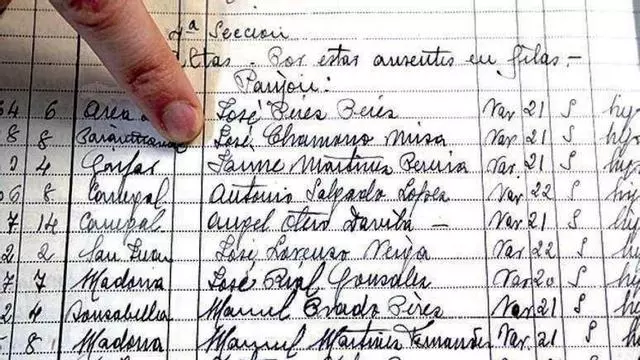 1ª Seccion
Altas - Por estar ausentes en filas.-
Panjón:
54 6 Area José Pérez Pérez Var. 21 S hy
8 8 José Chamorro Misa Var. 21 S hy
2 4 Jaime Martinez Pereira Var. 21 S hy
6 8 Canepal Antonio Salgado Lopez Var. 22 S hy
7 14 Canepal Angel Otero Davila - Var. 21 S hy
2 2 San Juan José Lorenzo Veiga Var. 22 S hy
7 7 Madorra José Rial Gonzales Var. 20 S hy
2 4 Sansabella Manuel Prado Pérez Var. 21 S hy
8 Madorra Manuel Martinez Fernandez Var. 21 S